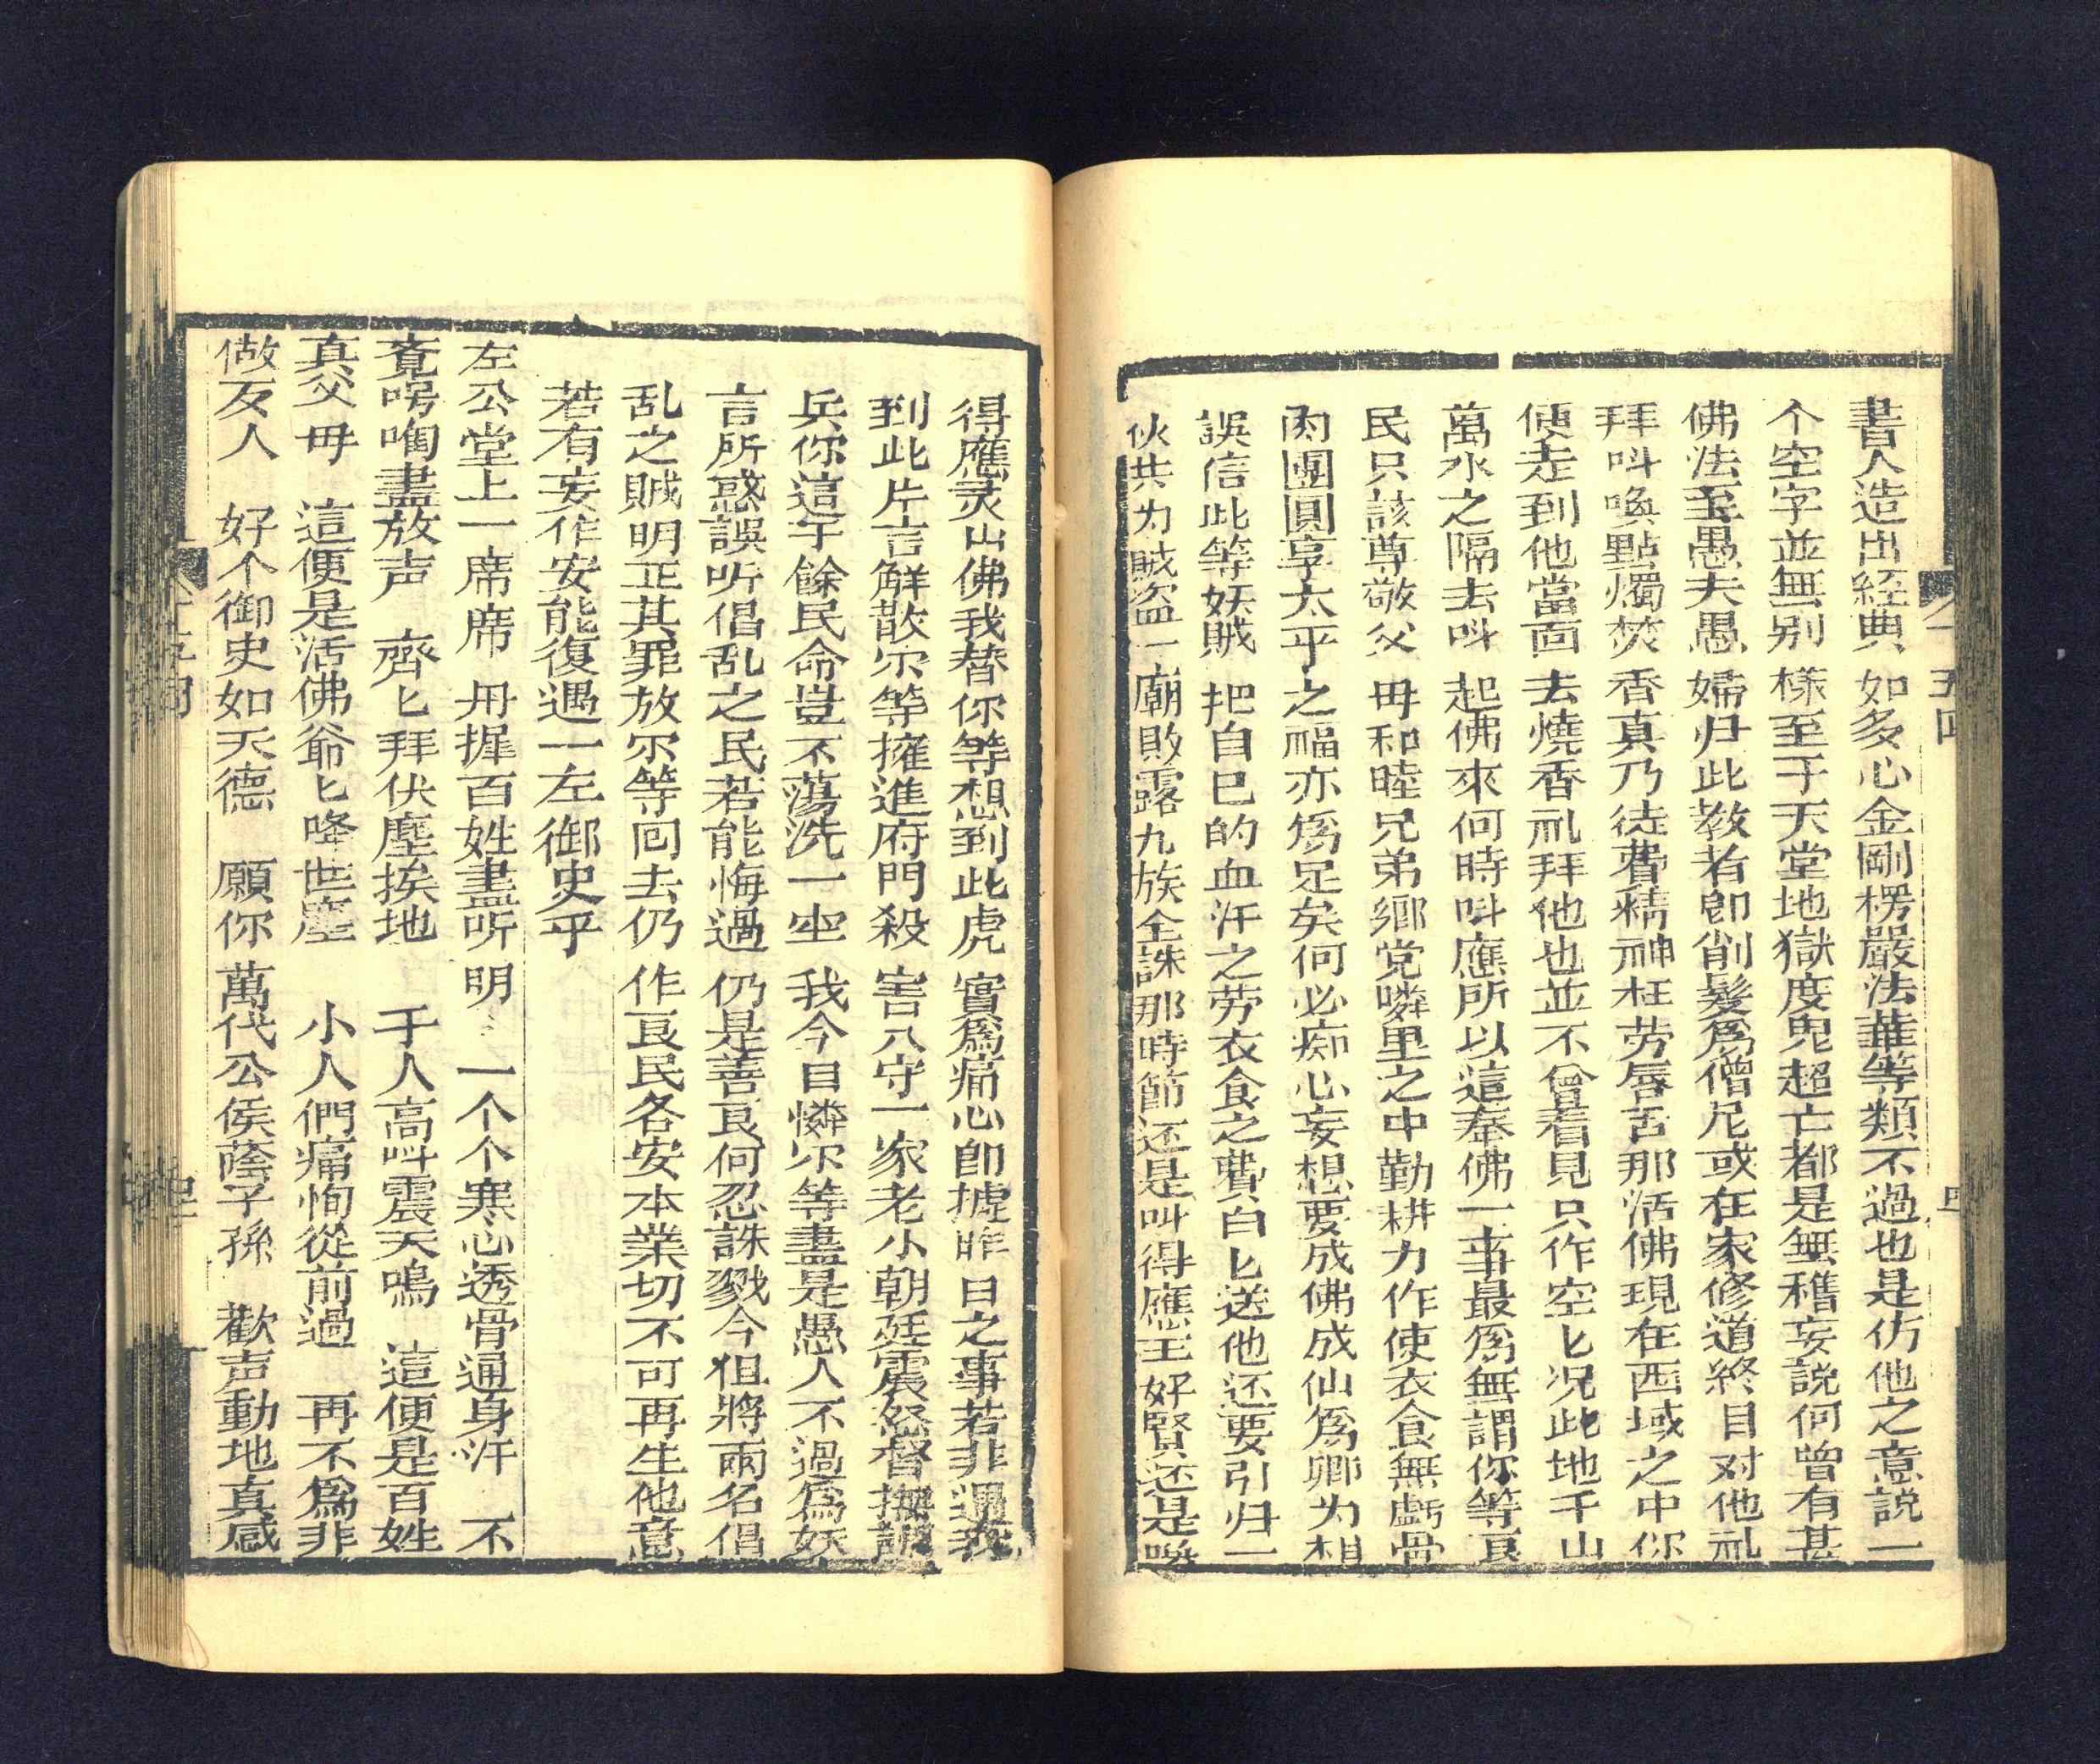 書人造出経典如多心金剛楞嚴法華等類不過也是仿他之意説一
个空字並無别様至于天堂地獄度鬼超亡都是無稽妄説何曽有甚
佛法至愚夫愚婦归此教者卽削髮爲僧尼或在家修道終日对他礼
拜呌喚點燭焚香真乃徒費精神枉劳唇舌那活佛現在西域之中你
便走到他當面去燒香礼拜他也並不曾看見只作空匕况此地千山
萬水之隔去呌起佛來何時呌應所以這奉佛一事最爲無謂你等良
民只該尊敬父毋和睦兄弟鄉党噒里之中勤耕力作使衣食無虧骨
肉團圓享太平之福亦爲足矣何必痴心妄想要成佛成仙爲卿为相
誤信此等妖賊把自已的血汗之劳衣食之費白匕送他还要引归一
伙共为賊盗一廟敗露九族全誅那時節还是呌得應王好賢还是喚
得應灵山佛我替你等想到此處實爲痛心卽㨿昨日之事若非遇我
到此片言觧散尔等擁進府門殺害八守一家老小朝廷震怒督撫調
兵你這于餘民命豈不蕩洗一空我今目憐尔等盡是愚人不過爲妖
言所惑誤听倡乱之民若能悔過仍是善良何忍誅戮今狙將兩名倡
乱之賊明正其罪放尔等回去仍作良民各安本業切不可再生他意
若有妄作安能復遇一左御史乎
左公堂上一席席毋擢百姓盡听明〻一个个寒心透骨通身汗不
覔啼啕盡放声齊匕拜伏塵埃地千人高呌震天鳴這便是百姓
真父毋這便是活佛爺匕降世塵小人們痛恂從前過再不爲非
做友人好个御史如天德願你萬代公侯蔭子孫歡声動地真感
五四